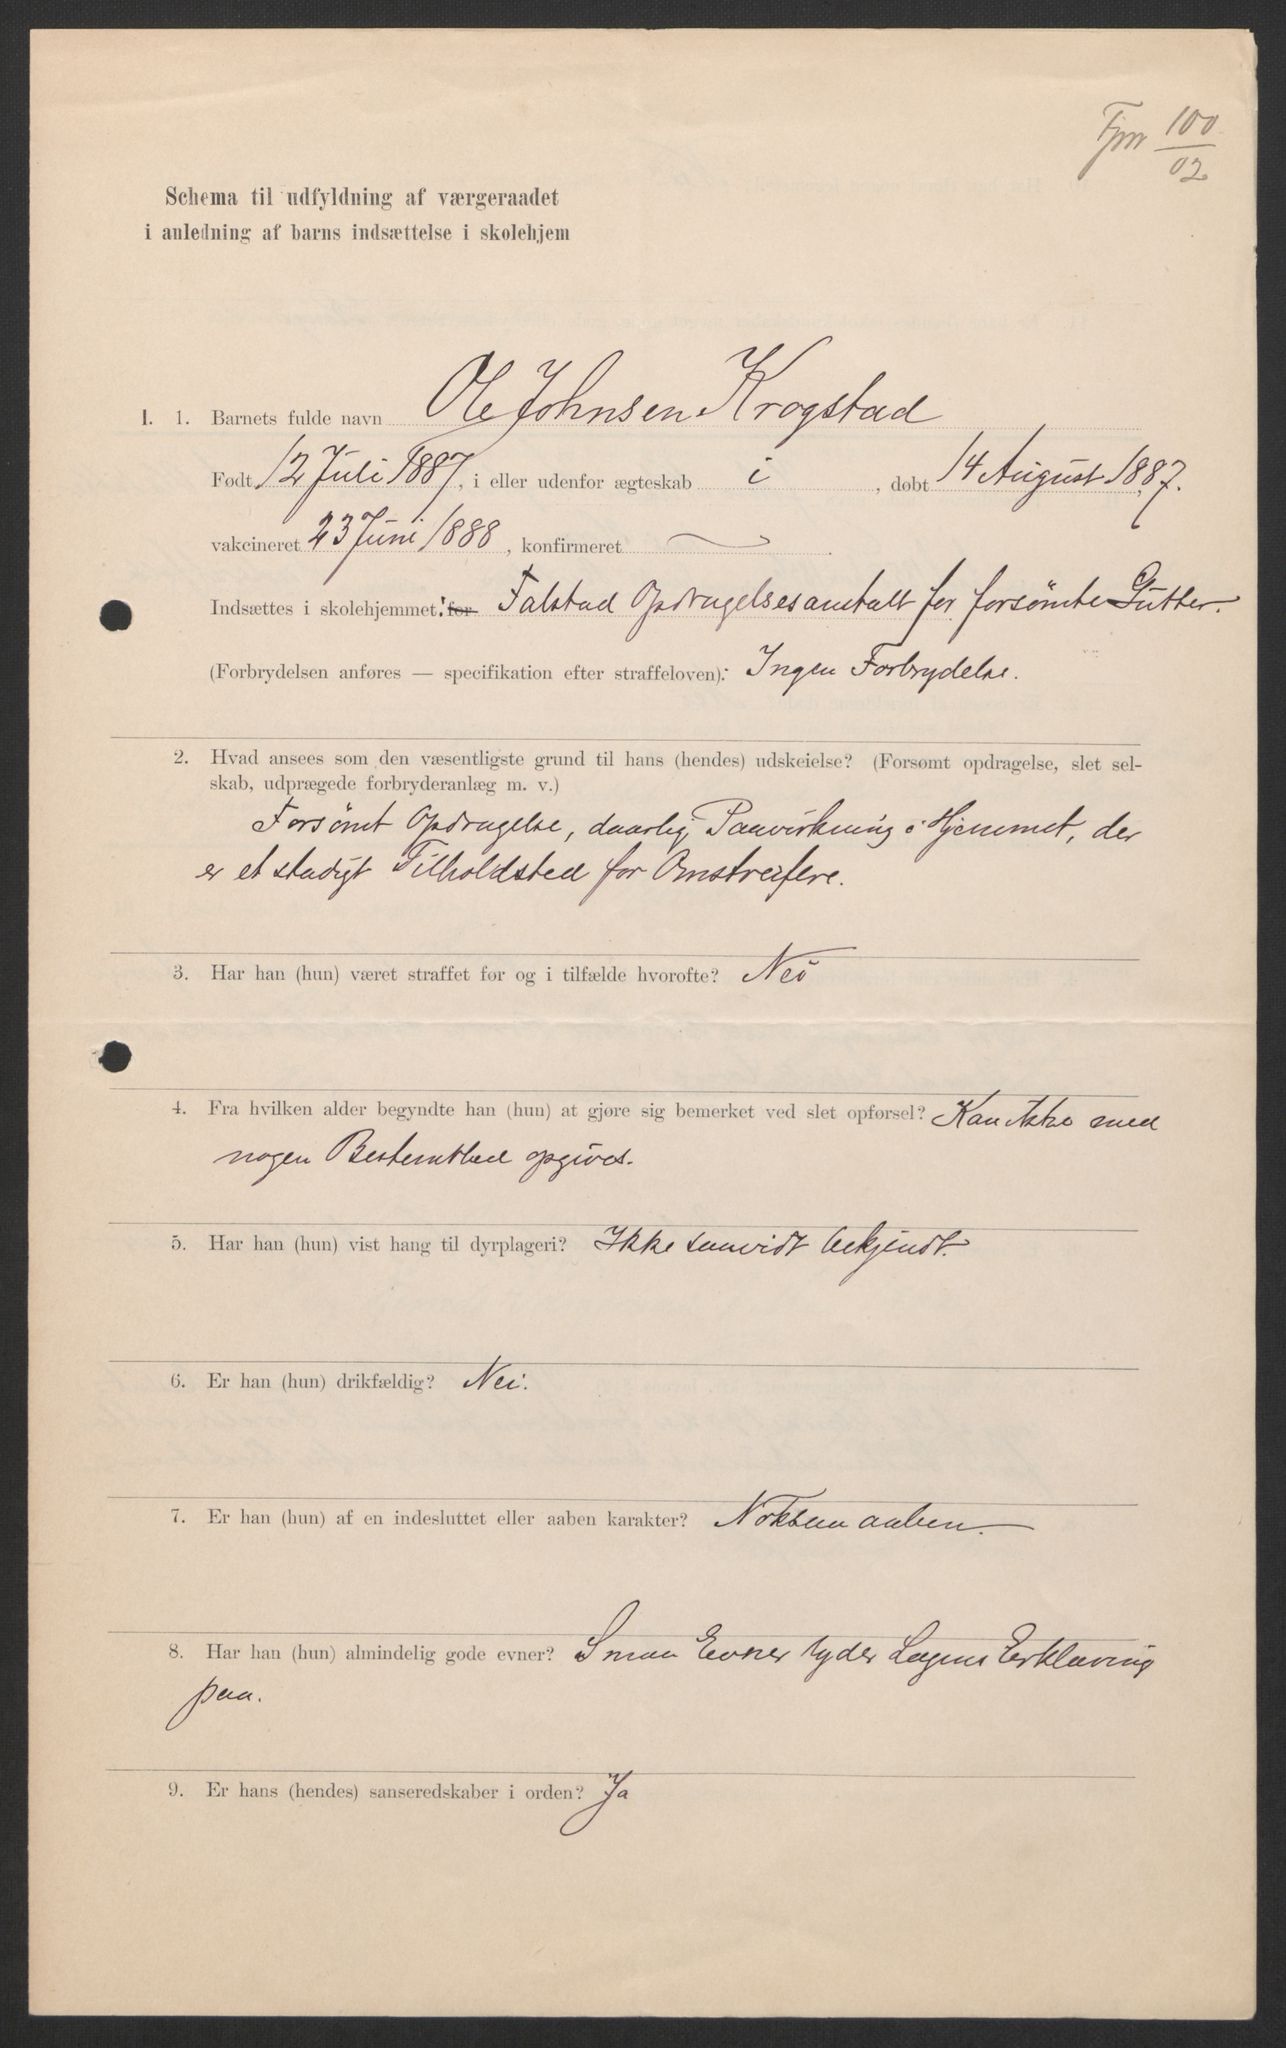 Fjm 100/02
Schema til udfyldning af værgeraadet
i anledning af barns indsættelse i skolehjem
I. 1. Barnets fulde navn Ole Johnsen Krogstad
Født 12 Juli 1887, i eller udenfor ægteskab i , døbt 14 August 1887.
vakcineret 23 Juni 1888, konfirmeret —
Indsættes i skolehjemmet: for Falstad Opdragelsesanstalt for forsømte Gutter.
(Forbrydelsen anføres — specifikation efter straffeloven): Ingen Forbrydelse.
2. Hvad ansees som den væsentligste grund til hans (hendes) udskeielse? (Forsømt opdragelse, slet sel-
skab, udprægede forbryderanlæg m. v.)
Forsømt Opdragelse, daarlig Paavirkning i Hjemmet, der
er et stadigt Tilholdsted for Omstreifere.
3. Har han (hun) været straffet før og i tilfælde hvorofte? Nei
4. Fra hvilken alder begyndte han (hun) at gjøre sig bemerket ved slet opførsel? Kan ikke med
nogen Bestemthed opgives.
5. Har han (hun) vist hang til dyrplageri? Ikke saavidt bekjendt.
6. Er han (hun) drikfældig? Nei.
7. Er han (hun) af en indesluttet eller aaben karakter? Noksaa aaben.
8. Har han (hun) almindelig gode evner? Smaa Evner tyder Lægens Erklæring
paa.
9. Er hans (hendes) sanseredskaber i orden? Ja